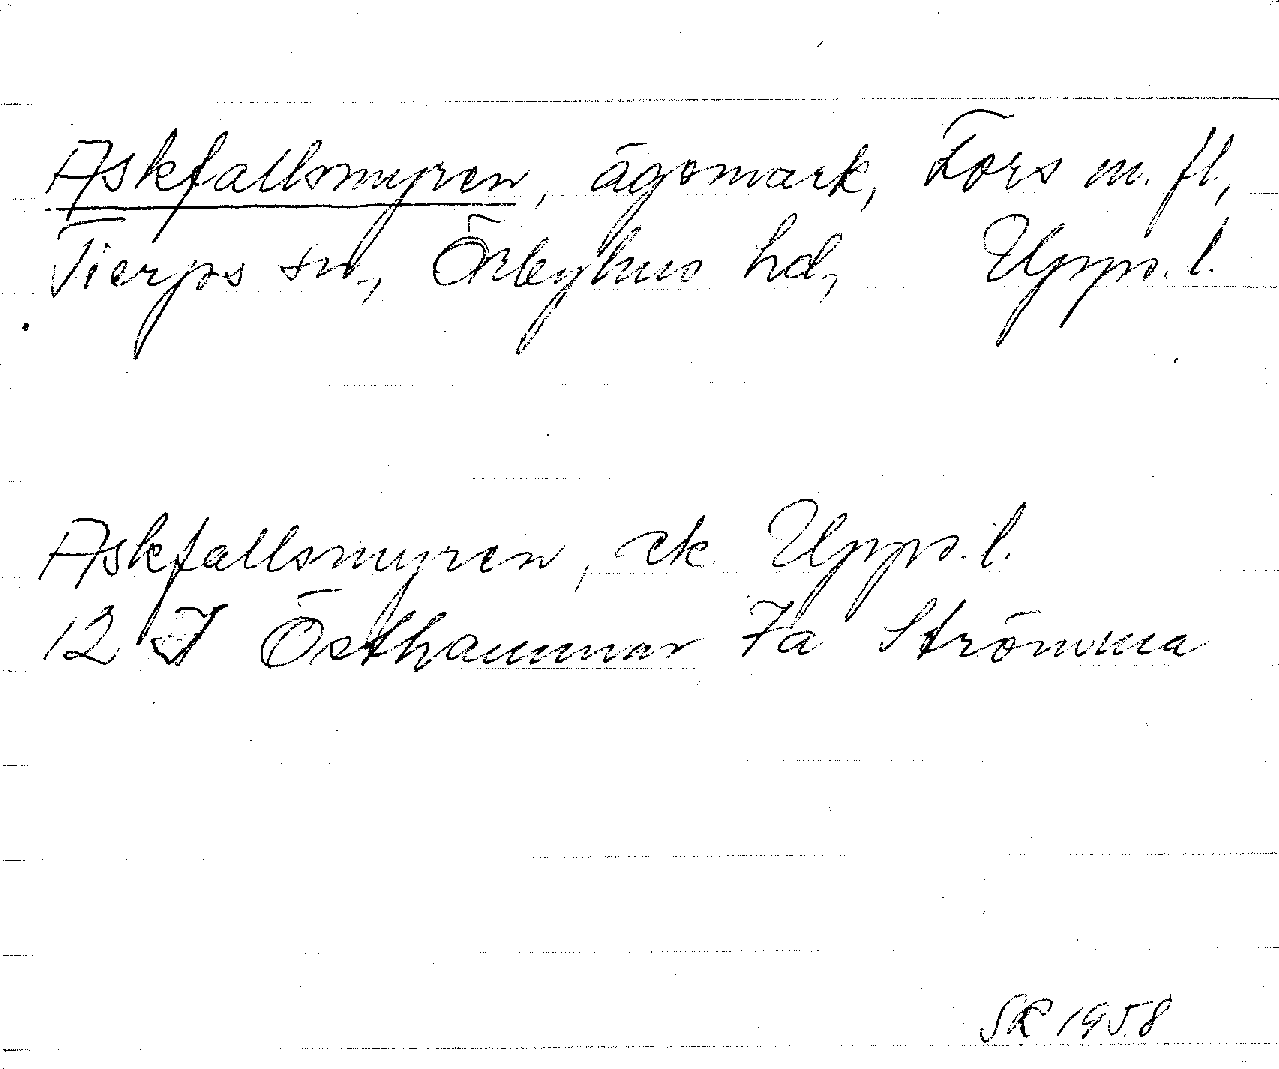 Askfallsmyren, ägomark, Fors m. fl.,
Tierps sn, Örbyhus hd, Upps. l.
Askfallsmyren, ek Upps. l.
12 I Östhammar 7a Strömma
SR 1958